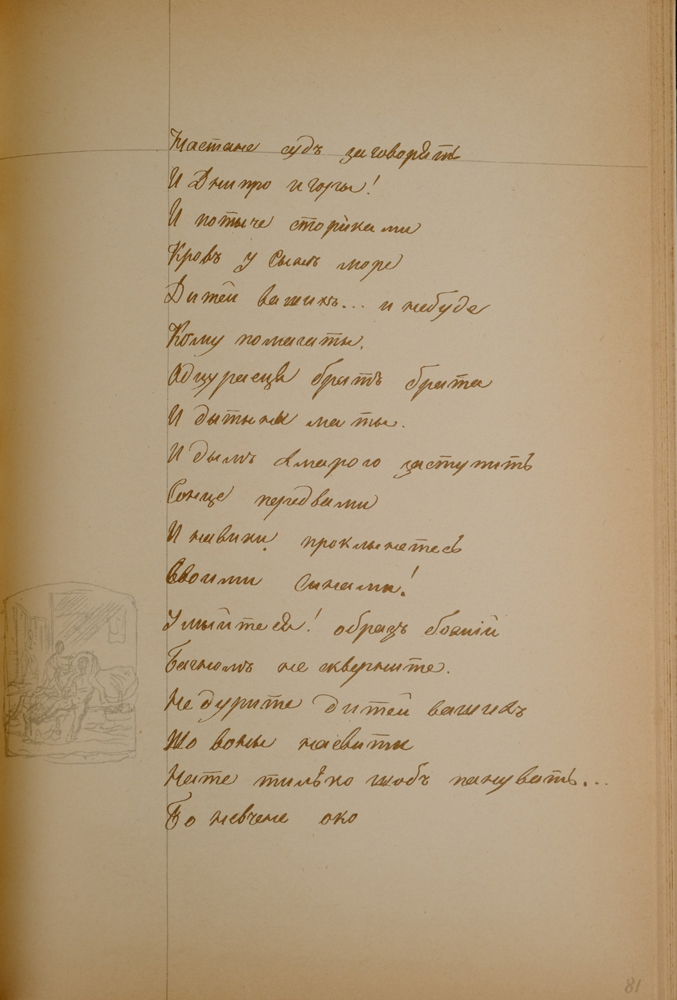 Настане судъ заговорять
И Днипро и горы!
И потыче сториками
Кровъ у сынъ море
Дитей вашихъ... и небуде
Кому помагаты.
Одцураецця братъ брата
И дытыны маты.
И дымъ хмарого заступить
Сонце передвами
И навики проклынетесь
Своими сынамы!
Умыйтеся! образъ божий
Багномъ не скверните.
Не дурите дитей вашихъ
Що воны насвиты
На те тилько щобъ пануватъ...
Бо невчене око
81